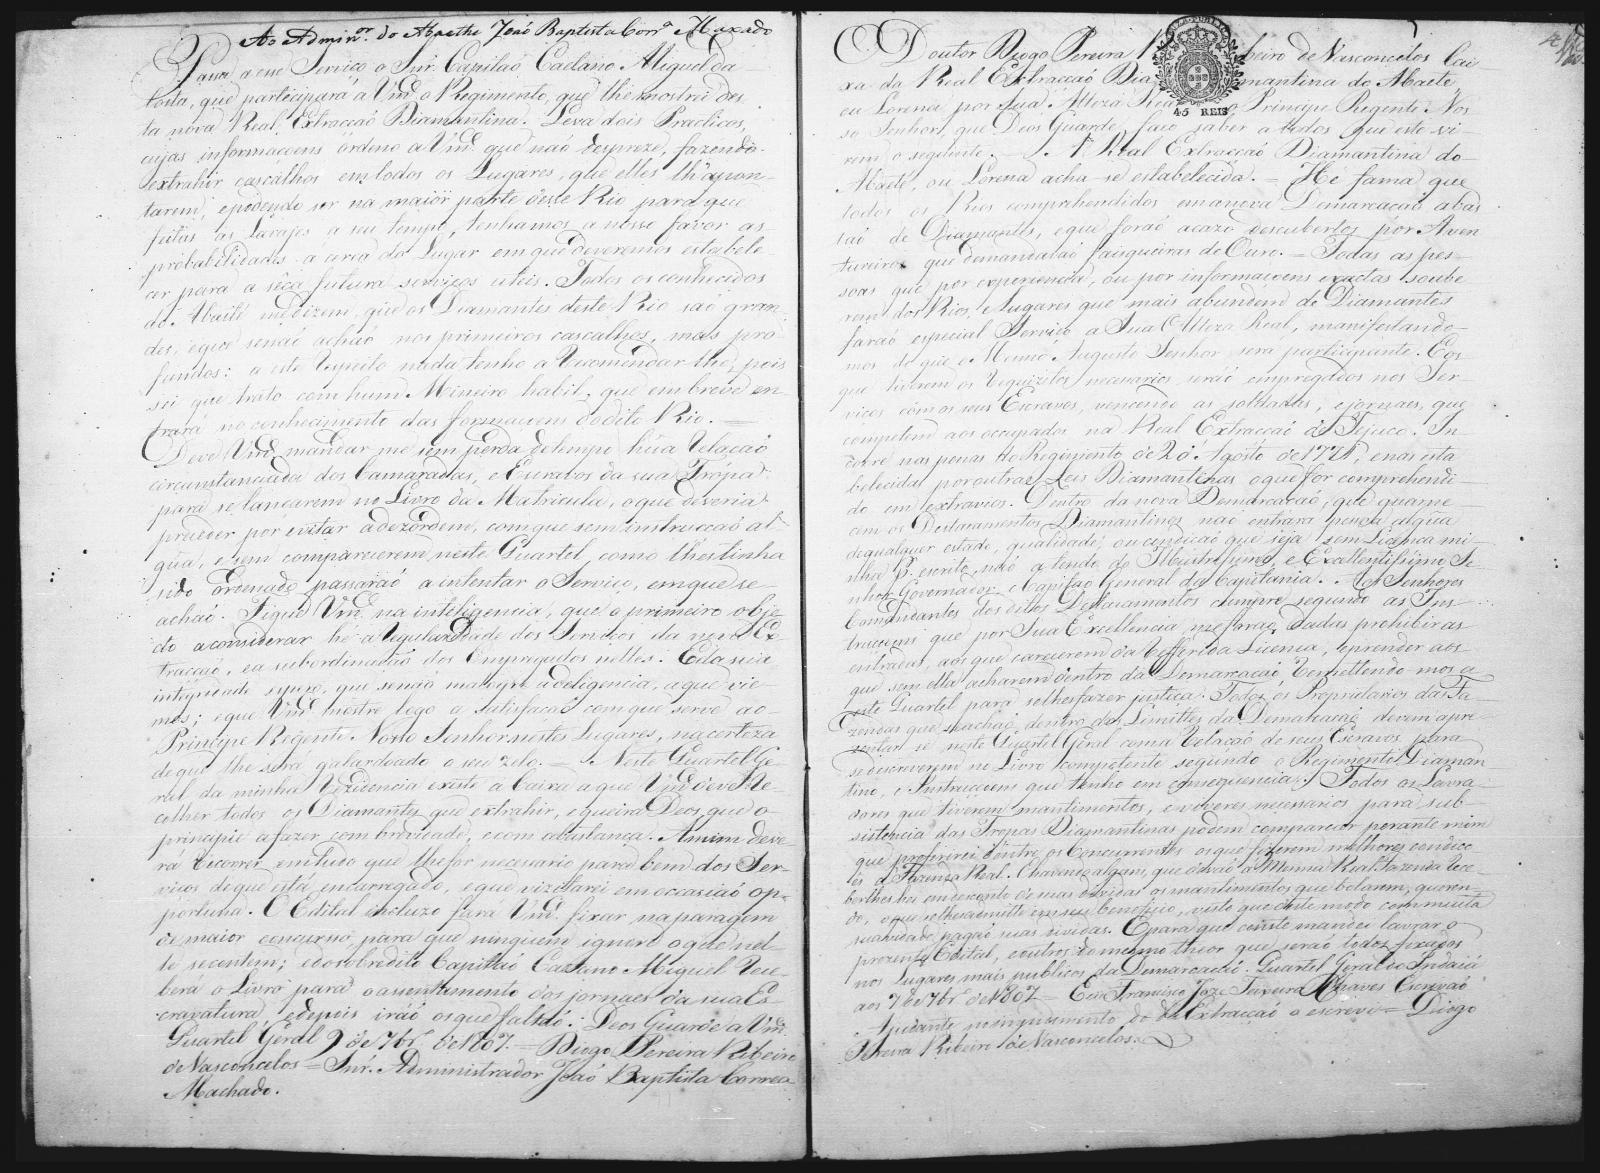 Ao Admin.or do Abaethe João Baptista Corr.a Maxado
Passa a esse Serviço o Snr. Capitaõ Caetano Miguel da
Costa, que participará a Vmce o Regimento, que lhe mostrei des-
ta nova Real Extracçaõ Diamantina. Leva dois Practicos,
cujas informaçoens ordeno a Vmce que naõ despreze, fazendo
extrahir cascalhos em todos os Lugares, que elles lh'apon-
tarem, e podendo ser na maior parte deste Rio para que
feitas as Lavajes a seu tempo, tenhamos a nosso favor as
probabilidades á cerca do Lugar em que deveremos estabele-
cer para a sêca futura serviços uteis. Todos os conhecidos
do Abaité me dizem, que os Diamantes deste Rio saõ gran-
des, e que se naõ achaõ nos primeiros cascalhos, mas pro-
fundos: a este respeito nada tenho a recomendar-lhe, pois
sei que trato com hum Mineiro habil, que em breve en-
trará no conhecimento das formaçoens do dito Rio.
Deve Vmce mandar-me sem perda de tempo huã relaçaõ
circunstanciada dos Camaradas, e Escravos da sua Tropa
para se lançarem no Livro da Matricula, o que deveria
preceder por evitar a dezordem, com que sem instrucçaõ al-
guã, e sem comparecerem neste Quartel, como lhes tinha
sido ordenado passaraõ a intentar o Serviço, em que se
achaõ. Fique Vmce na inteligencia, que o primeiro obje-
cto a considerar he a regularidade dos Servicos da nova Ex-
tracçaõ, e a subordinaçaõ dos Empregados nelles. E da sua
integridade espero, que se naõ malogre a deligencia, a que vie-
mos; e que Vmce mostre logo a satisfaçaõ com que serve ao
Principe Regente Nosso Senhor nestes Lugares, na certeza
de que lhe será galardoado o seu zelo. = Neste Quartel Ge-
ral da minha Rezidencia existe a Caixa a que Vmce deve Re-
colher todos os Diamantes que extrahir, e queira Deos que o
principie a fazer com brevidade, e com abastança. A mim deve-
rá recorrer em tudo que lhe for necessario para bem dos Ser-
viços de que está encarregado, e que vizitarei em occasiaõ op-
portuna. O Edital incluzo fará Vmce fixar na paragem
de maior concurso, para que ninguem ignore o que nel-
le se contem; e do sobredito Capitaõ Caetano Miguel rece-
berá o Livro para o assentamento dos jornaes da sua Es-
cravatura, e depois iráõ os que faltaõ. Deos Guarde a Vmce
Quartel Geral 9 de 7br.o de 1807. = Diogo Pereira Ribeiro
de Vasconcelos = Snr. Administrador Joaõ Baptista Correa
Machado.
O Doutor Diogo Pereira Ribeiro de Vasconcelos Cai-
xa da Real Extracçaõ Diamantina do Abaete,
ou Lorena por Sua Alteza Real o Principe Regente Nos-
so Senhor, que Deos Guarde, faço saber a todos que este vi-
rem o seguinte. A Real Extracçaõ Diamantina do
Abaete, ou Lorena acha-se estabelecida. = He fama que
todos os Rios comprehendidos em a nova Demarcaçaõ abas-
taõ de Diamantes, e que foraõ acazo descubertos por Aven-
tureiros que demandavaõ faisqueiras de Ouro. = Todas as pes-
soas que por experiencia, ou por informaçoens exactas soube-
rem dos Rios, e lugares que mais abundem de Diamantes
faraõ especial Serviço a Sua Alteza Real, manifestando-
mos de que o Mesmo Augusto Senhor será participante. E os
que tiverem os requizitos necesarios seráõ empregados nos Ser-
viços com os seus Escravos, vencendo as soldadas, e jornaes, que
competem aos occupados na Real Extracçaõ do Tejuco. In-
corre nas penas do Regimento de 2 de Agosto de 1771, e nas esta-
belecidas por outras Leis Diamantinas o que for comprehendi-
do em extravios. Dentro da nova Demarcaçaõ, que guarne-
cem os Destacamentos Diamantinos naõ entrará pessoa algúa
de qualquer estado, qualidade, ou condiçaõ que seja sem Licença mi-
nha p.r escrito, naõ a tendo do Illustrissimo, e Excellentissimo Se-
nhor Governador, e Capitaõ General da Capitania. Aos Senhores
Comandantes dos ditos Destacamentos cumpre segundo as Ins-
trucçoens que por Sua Excellencia me foraõ dadas prohibir as
entradas, aos que carecerem da refferida Licença, e prender aos
que sem ella acharem dentro da Demarcaçaõ, remettendo-mos a
este Quartel para se lhes fazer justiça. Todos os Proprietarios das Fa-
zendas que se achaõ dentro dos Limittes da Demarcaçaõ devem apre-
sentar-se neste Quartel Geral com a relaçaõ de seus Escravos para
se descreverem no Livro competente segundo o Regimento Diaman-
tino, e Instrucçoens que tenho em consequencia. Todos os Lavra-
dores que tiverem mantimentos, e viveres necesarios para sub-
sistencia das Tropas Diamantinas podem comparecer perante mim
que preferirei dentre os Concurrentes os que fizerem melhores condico-
es á Fazenda Real. Havendo algum, que deva á Mesma Real Fazenda rece-
berlhes hei em desconto de suas dividas os mantimentos que botarem, queren-
do, o que se lhes admitte em seu beneficio, visto que deste modo com muita
suavidade pagaõ suas dividas. E para que conste mandei lavrar o
prezente Edital, e outros do mesmo theor que seraõ todos fixados
nos Lugares mais publicos da Demarcaçaõ. Quartel Geral do Indaiá
aos 7 de 7br.o de 1807 = E eu Francisco Joze Teixeira Chaves Escrivaõ
Ajudante no impedimento do da Extracçaõ o escrevi = Diogo
Pereira Ribeiro de Vasconcelos.
45 REIS